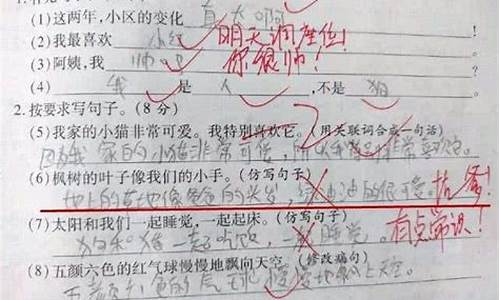 (1)这两年,小区的变化 真大啊
(2)我最喜欢 小红 明天调座位!
(3)阿姨,我 帅吧 你很帅!
(4) 我 是 人 ,不是 狗
2.按要求写句子。(8分)
(5)我家的小猫非常可爱。我特别喜欢它。(用关联词合成一句话)
因为我家的小猫非常可爱,所以我非常喜欢它。
(6)枫树的叶子像我们的小手。(仿写句子)
地上的草地像爸爸的头发, 的很可爱。 爹!
(7)太阳和我们一起睡觉,一起起床。(仿写句子)
狗和猪一起吃饭,一 睡觉。 有点常识!
(8)五颜六色的红气球慢慢地飘向天空。(修改病句)
五颜六色的气球慢慢地飘上天空。